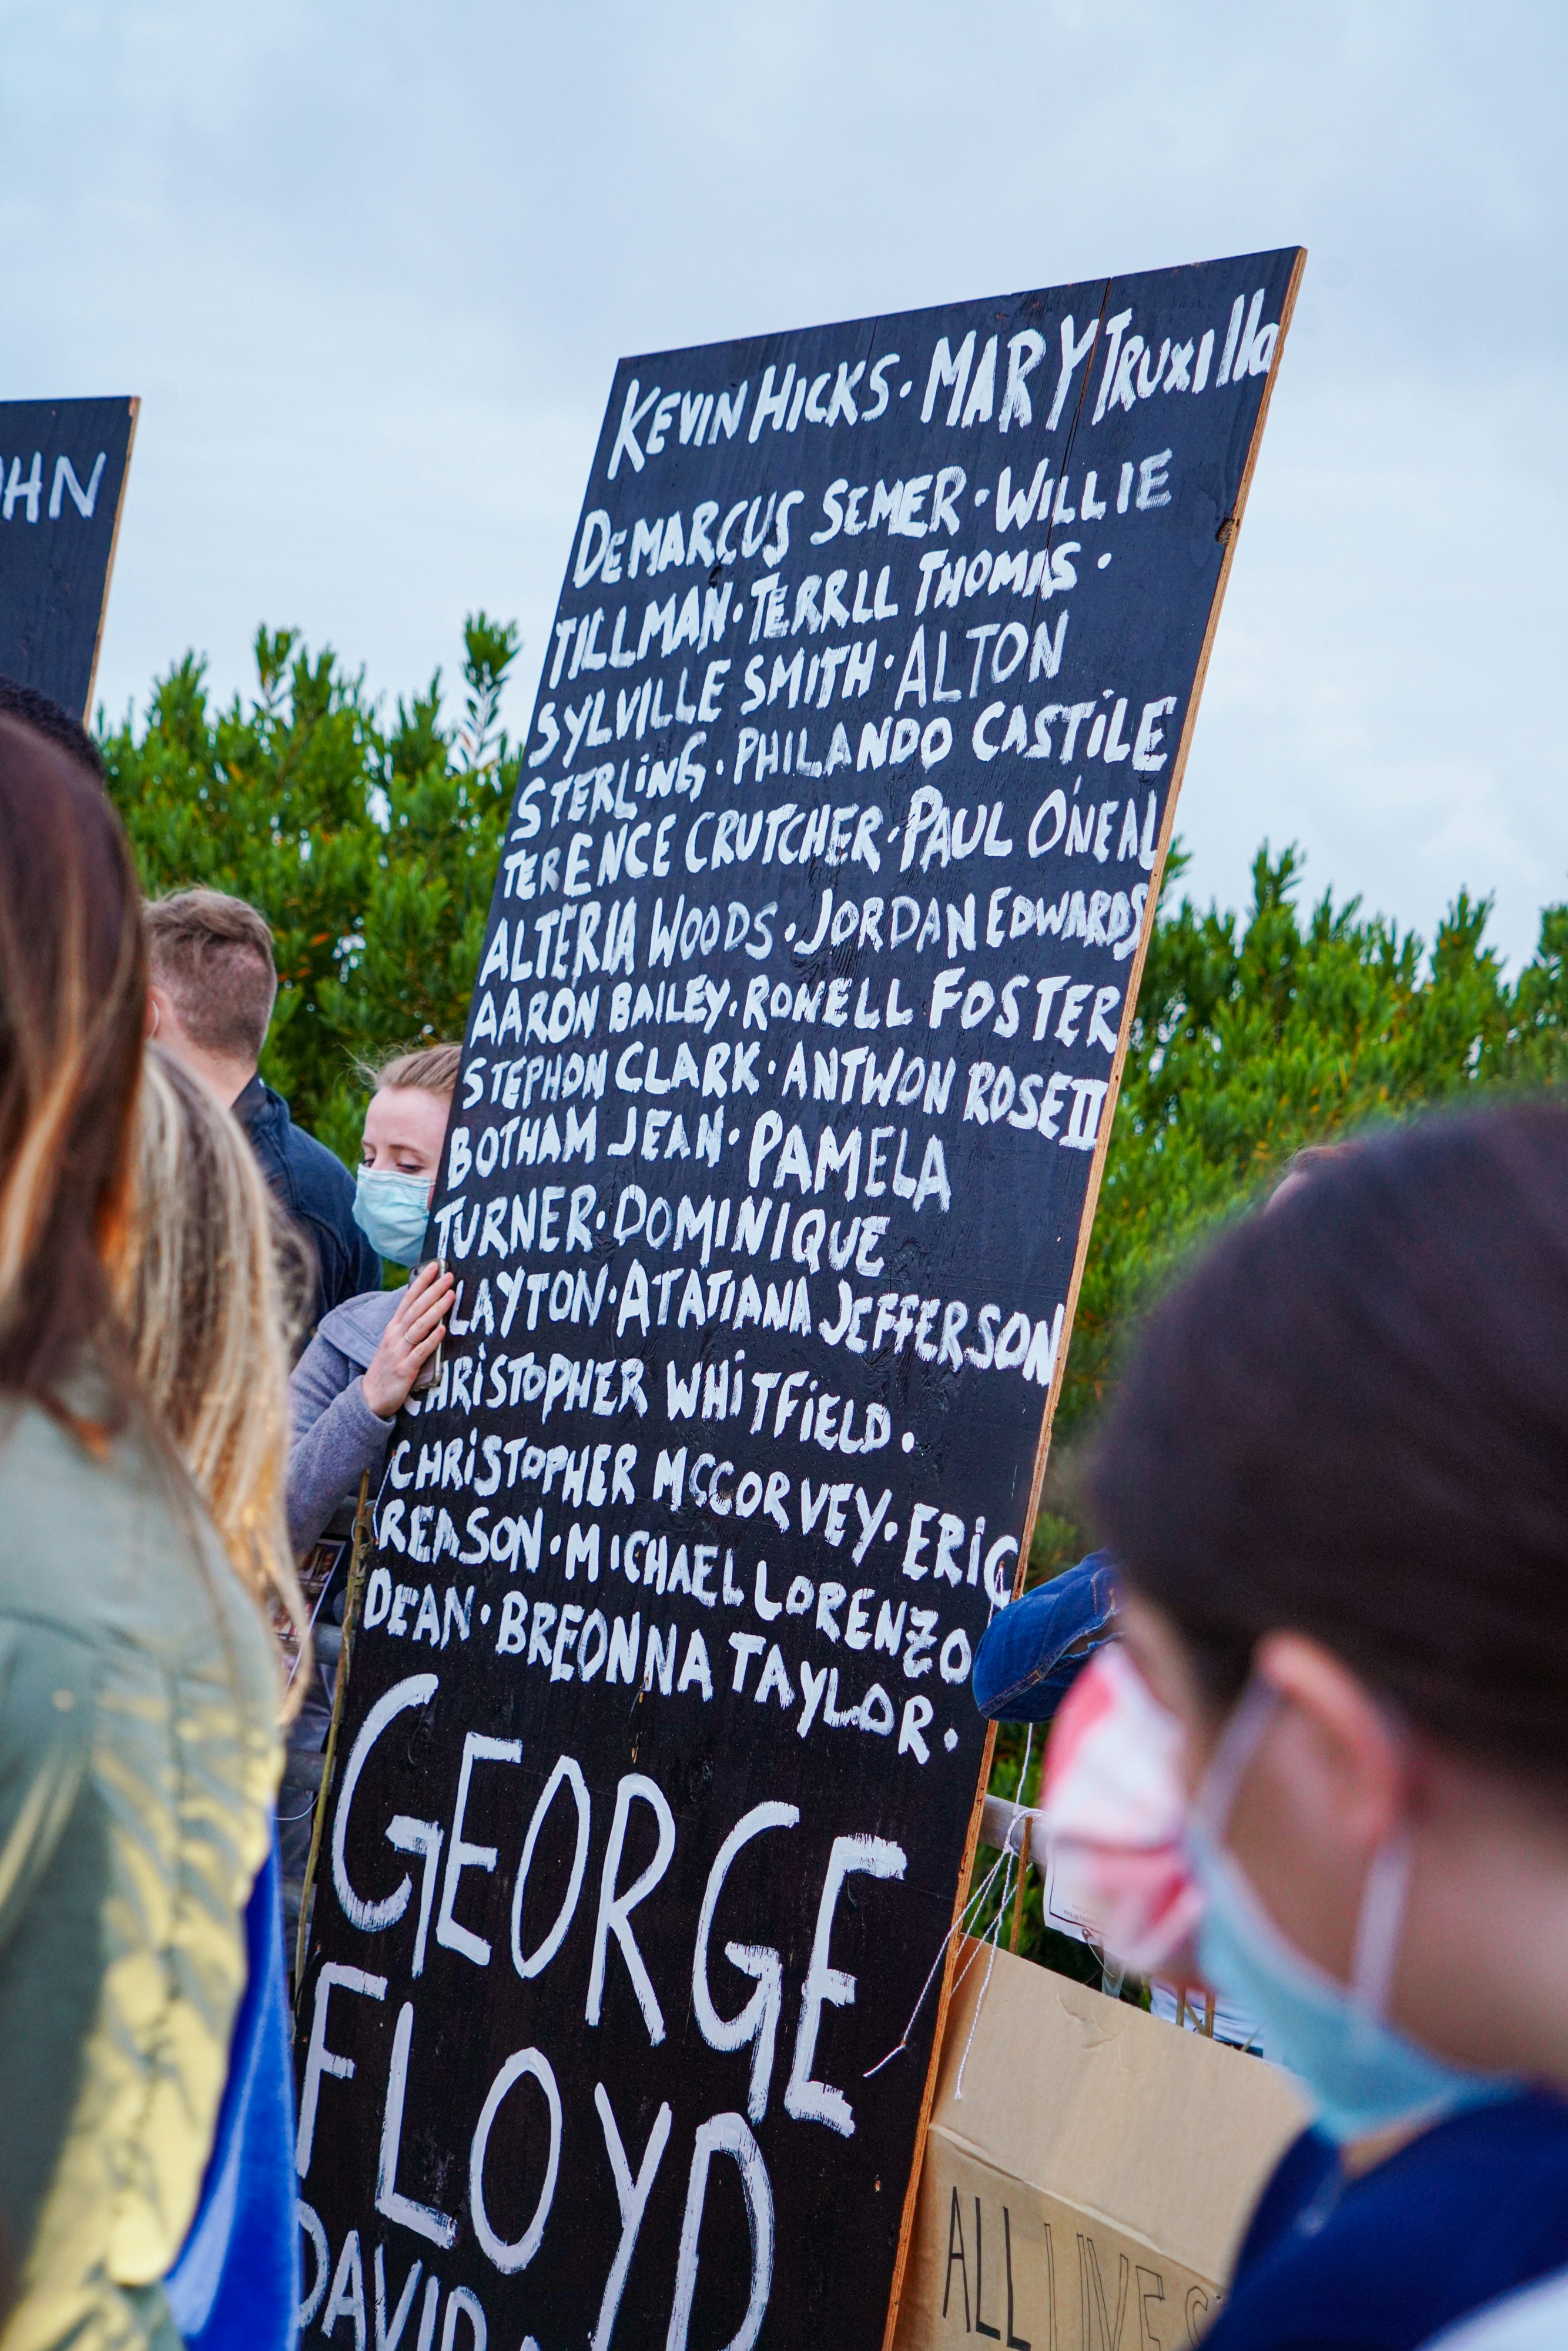 HN
KEVIN HICKS · MARY TRUXIlla
DEMARCUS SEMER · WILLIE
TILLMAN · TERRLL THOMAS ·
SYLVILLE SMITH · ALTON
STERLiNG · PHILANDO CASTiLE
TERENCE CRUTCHER · PAUL O'NEAL
ALTERIA WOODS · JORDAN EDWARDS
AARON BAILEY · RONELL FOSTER
STEPHON CLARK · ANTWON ROSE II
BOTHAM JEAN · PAMELA
TURNER · DOMINIQUE
LAYTON · ATATIANA JEFFERSON
CHRiSTOPHER WHiTFiELD ·
CHRiSTOPHER MCCORVEY · ERiC
REASON · MICHAEL LORENZO
DEAN · BREONNA TAYLOR ·
GEORGE
FLOYD
DAVID
ALL LIVES